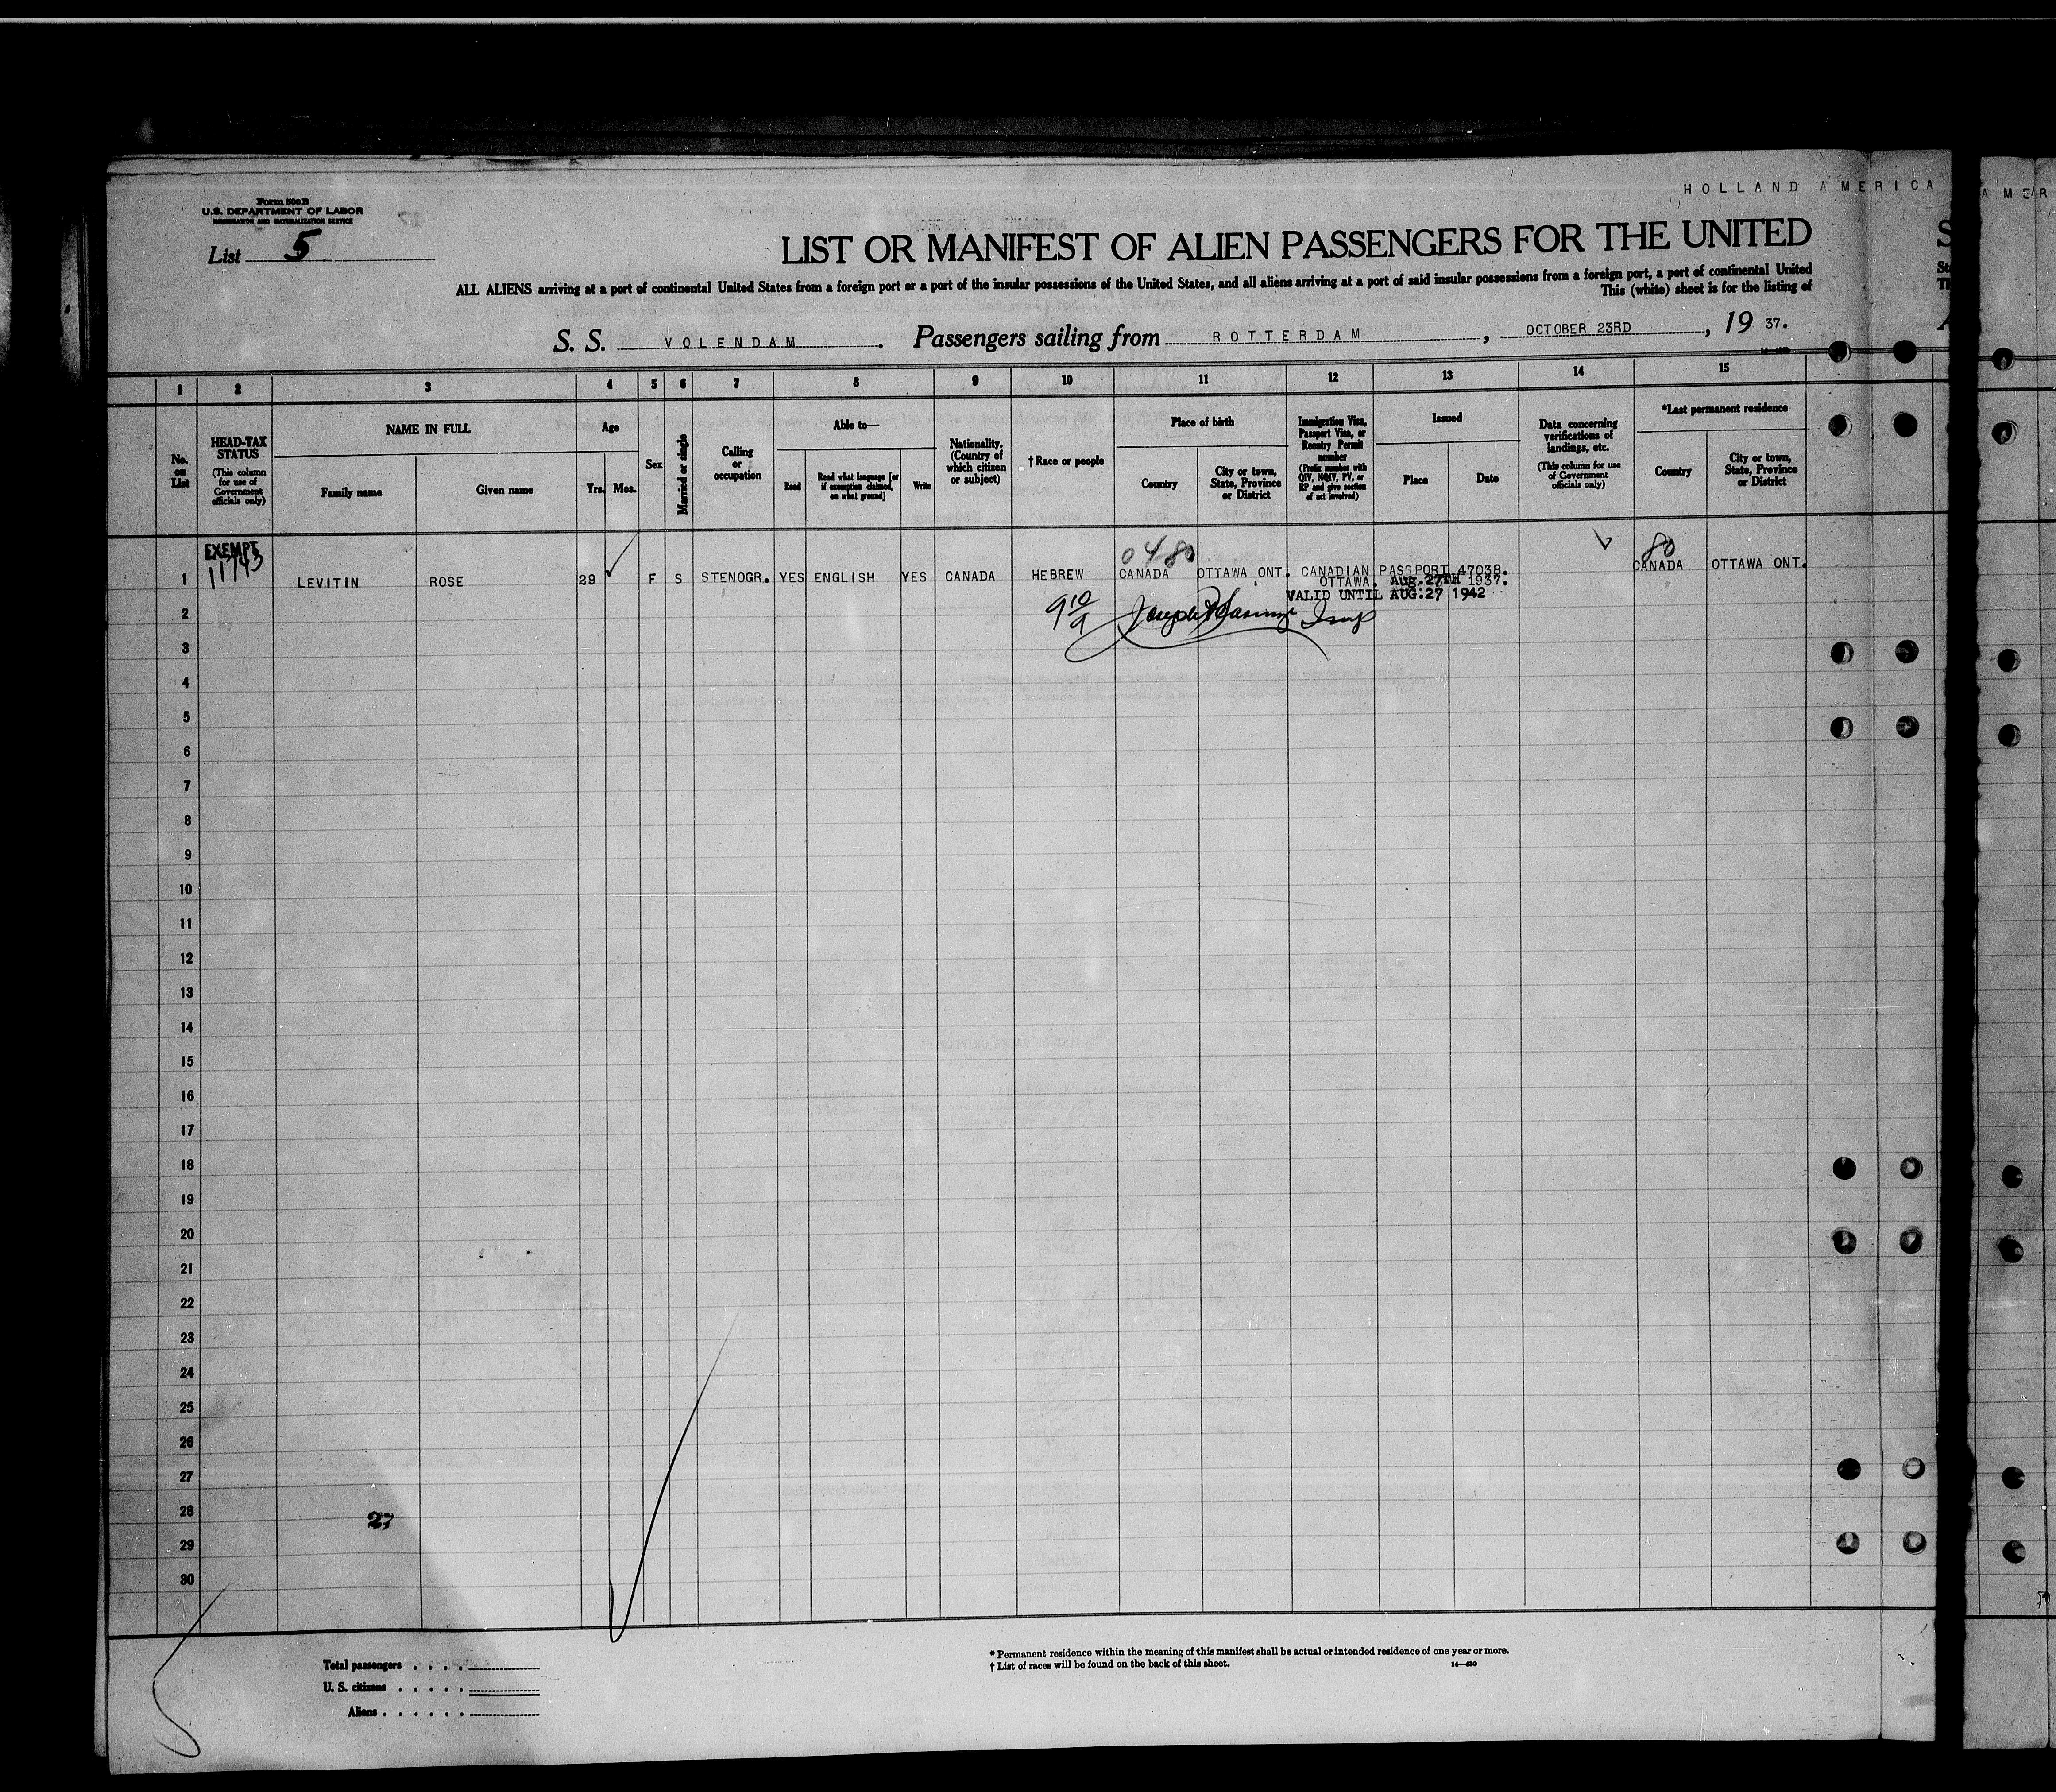 HOLLAND AMERICA
A M E R
Form 500 B
U.S. DEPARTMENT OF LABOR
IMMIGRATION AND NATURALIZATION SERVICE
List 5
LIST OR MANIFEST OF ALIEN PASSENGERS FOR THE UNITED
S
ALL ALIENS arriving at a port of continental United States from a foreign port or a port of the insular possessions of the United States, and all aliens arriving at a port of said insular possessions from a foreign port, a port of continental United
This (white) sheet is for the listing of
S. S. VOLENDAM. Passengers sailing from ROTTERDAM, OCTOBER 23RD, 19 37.
1 2 3 4 5 6 7 8 9 10 11 12 13 14 15
No. on List
HEAD-TAX STATUS
(This column for use of Government officials only)
NAME IN FULL
Family name
Given name
Age
Yrs. Mos.
Sex
Married or single
Calling or occupation
Able to—
Read
Read what language [or if exemption claimed, on what ground]
Write
Nationality. (Country of which citizen or subject)
†Race or people
Place of birth
Country
City or town, State, Province or District
Immigration Visa, Passport Visa, or Reentry Permit number
(Prefix number with QIV, NQIV, PV, or RP and give section of act involved)
Issued
Place
Date
Data concerning verifications of landings, etc.
(This column for use of Government officials only)
*Last permanent residence
Country
City or town, State, Province or District
EXEMPT
11743
0480
80
1 LEVITIN ROSE 29 F S STENOGR. YES ENGLISH YES CANADA HEBREW CANADA OTTAWA ONT. CANADIAN PASSPORT 47038. CANADA OTTAWA ONT.
OTTAWA. Aug.27TH 1937.
VALID UNTIL AUG.27 1942
2
3
4
5
6
7
8
9
10
11
12
13
14
15
16
17
18
19
20
21
22
23
24
25
26
27
28
27
29
30
Total passengers
U. S. citizens
Aliens
* Permanent residence within the meaning of this manifest shall be actual or intended residence of one year or more.
† List of races will be found on the back of this sheet.
14—430